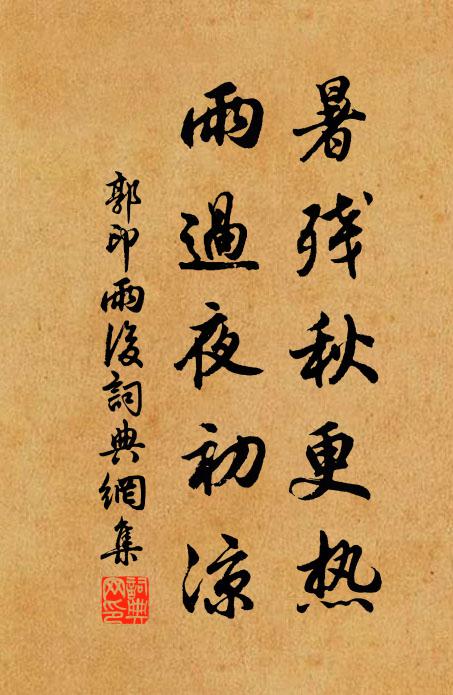 暑残秋更热
雨過夜初涼
郭印雨後詞典網集
詞典网印